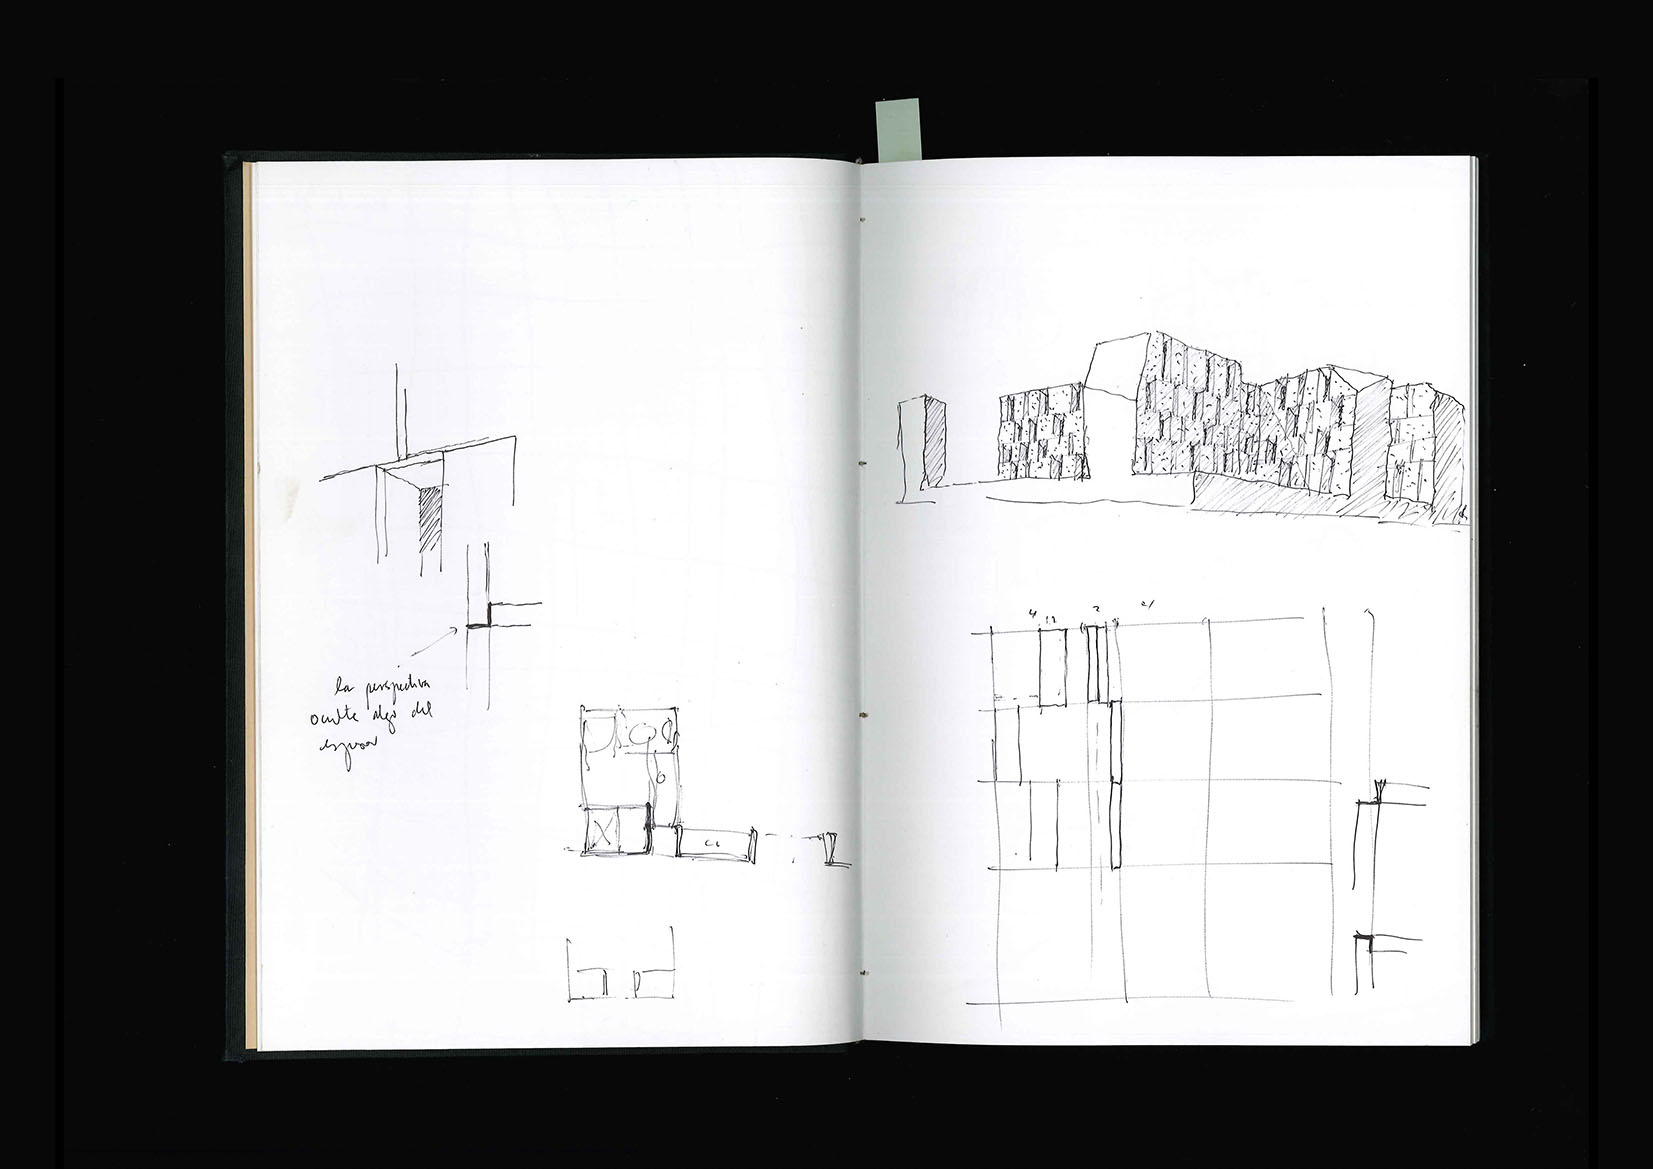 la perspectiva
oculta algo del
espesor
4 12 2